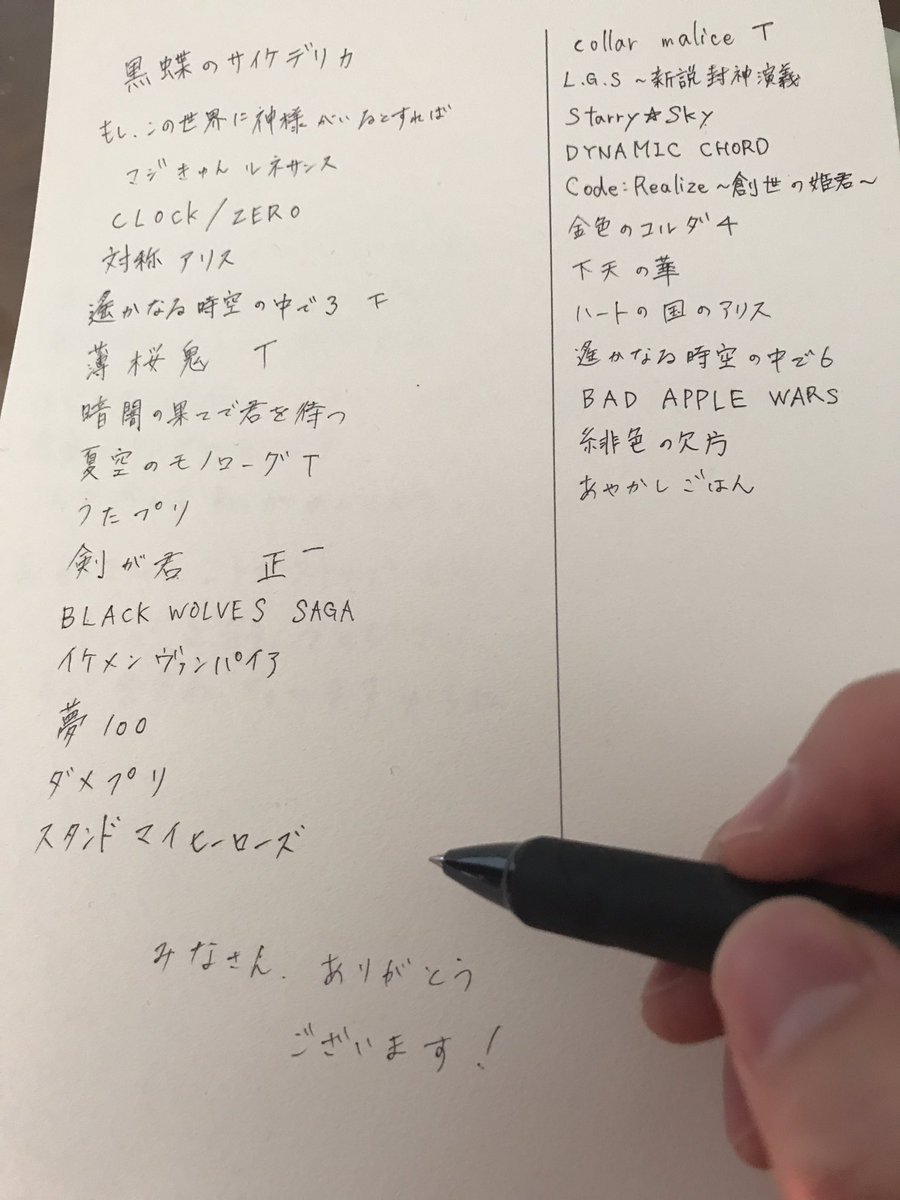 黒蝶のサイケデリカ
もし、この世界に神様がいるとすれば
マジきゅんルネサンス
CLOCK/ZERO
対称アリス
遙かなる時空の中で3 下
薄桜鬼 T
暗闇の果てで君を待つ
夏空のモノローグ T
うたプリ
剣が君 正一
BLACK WOLVES SAGA
イケメンヴァンパイア
夢100
ダメプリ
スタンドマイヒーローズ
みなさん、ありがとう
ございます!
collar malice T
L.G.S ~新説封神演義
Starry☆Sky
DYNAMIC CHORD
Code:Realize~創世の姫君~
金色のコルダ4
下天の華
ハートの国のアリス
遙かなる時空の中で6
BAD APPLE WARS
緋色の欠片
あやかしごはん